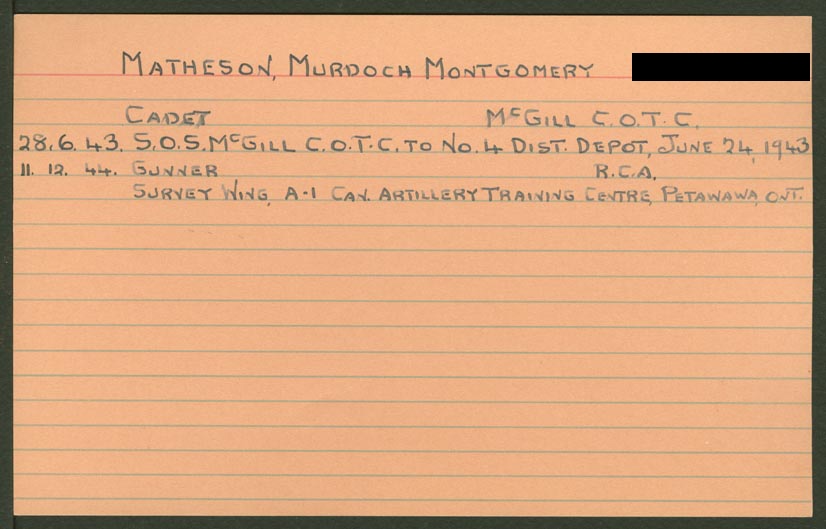 MATHESON, MURDOCH MONTGOMERY
CADET McGILL C.O.T.C.
28.6.43. S.O.S. McGILL C.O.T.C. TO No.4 DIST. DEPOT, JUNE 24, 1943
11. 12. 44. GUNNER R.C.A.
SURVEY WING, A-1 CAN. ARTILLERY TRAINING CENTRE, PETAWAWA, ONT.